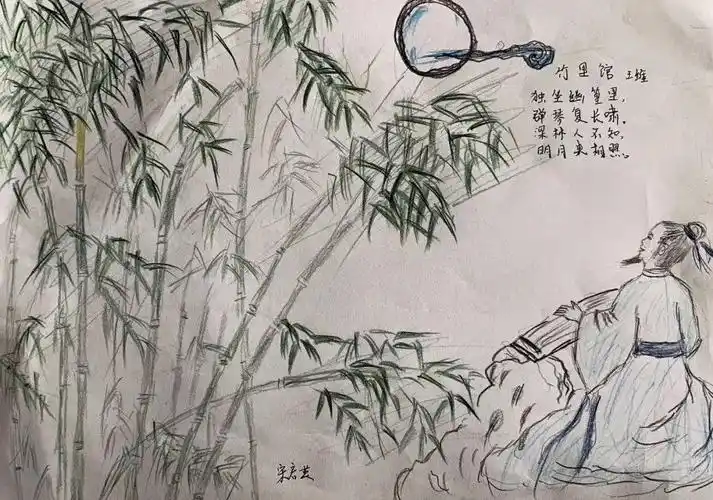 竹里馆 王维
独坐幽篁里，
弹琴复长啸。
深林人不知，
明月来相照。